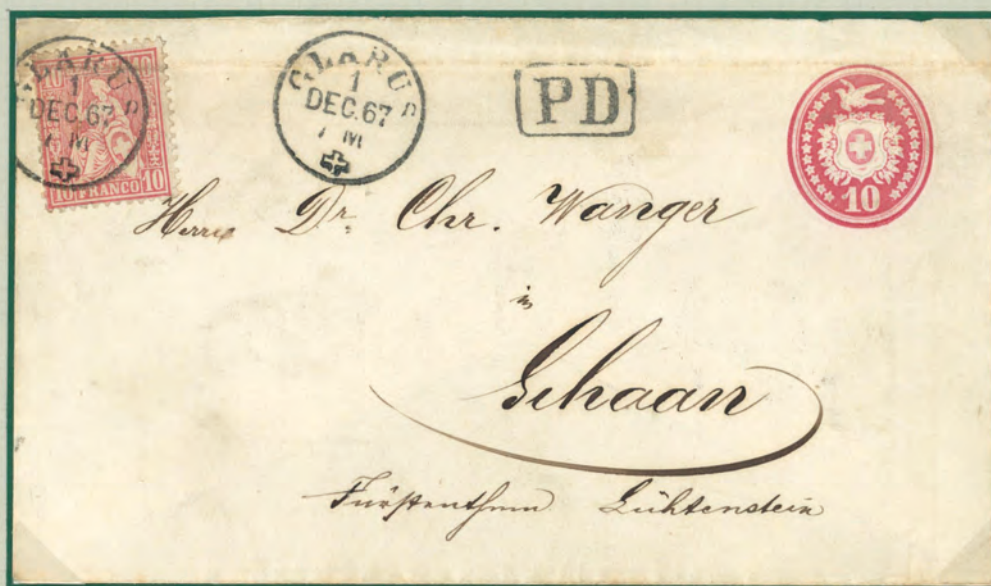 10 10
GLARUS
1
DEC. 67
7 M
10 FRANCO 10
GLARUS
1
DEC. 67
7 M
PD
10
Herrn Dr. Chr. Wanger
in
Schaan
Fürstenthum Lichtenstein